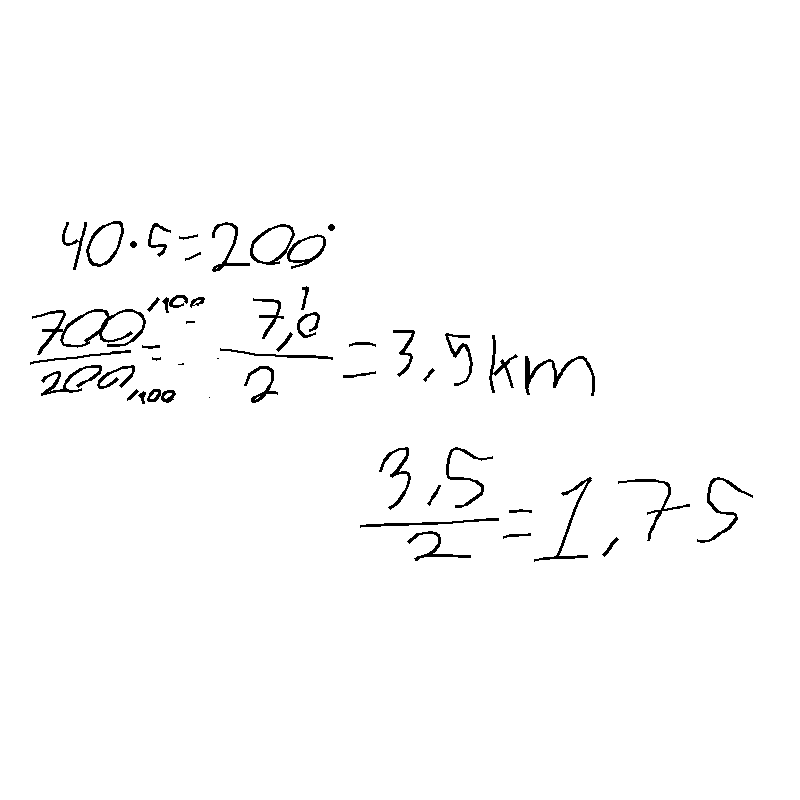 40·5=200
700/100 / 200/100 = 7,0 / 2 = 3,5 km
3,5 / 2 = 1,75